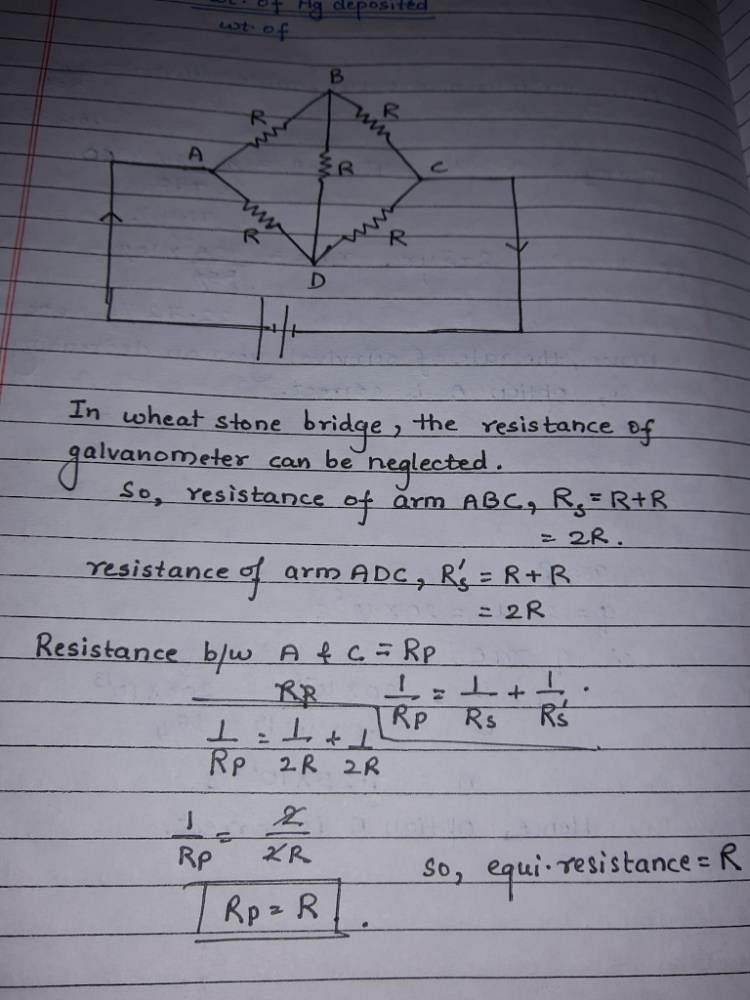 wt. of Ag deposited
wt. of
B
R
R
A
R
C
R
R
D
In wheat stone bridge, the resistance of
galvanometer can be neglected.
So, resistance of arm ABC, Rs = R+R
= 2R.
resistance of arm ADC, R's = R + R
= 2R
Resistance b/w A & C = Rp
RR 1/Rp = 1/Rs + 1/Rs'.
1/Rp = 1/2R + 1/2R
1/Rp = 2/2R
so, equi. resistance = R
Rp = R.